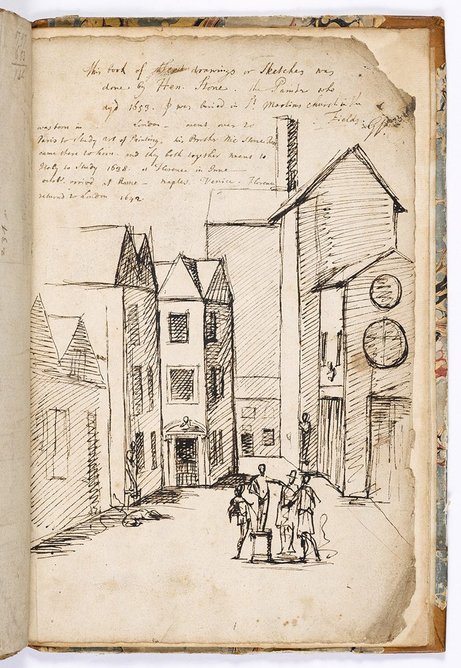 this book of drawings or Sketches was
done by Hen. Stone. the Painter who
dyd 1653. & was buried in St Martins church in the
Fields.
was born in London - went over to
Paris to Study art of Painting. his Brother Nic Stone
came there to him. and they both together went to
Italy to Study 1638. at Florence in June
octobr. arrived at Rome - naples. Venice. Florence
returnd to London 1642